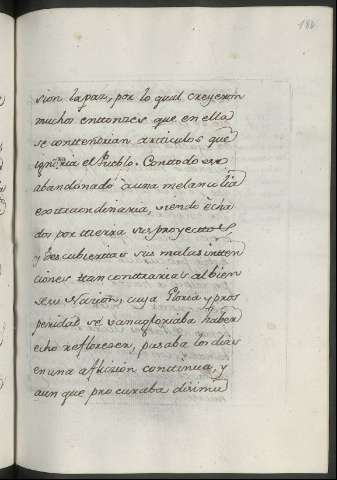 186
sion la paz, por lo qual creyeron
muchos enttonzes que en ella
se conttendrian articulos que
ignoria el Pueblo. Conttodo
abandonado à una melancolia
exttraordinaria, viendo echa
dos por tierra sus proyecttos,
y descubierttas sus malas intten
ciones ttan conttrarias al bien
de su Nazion, cuya Gloria y pros
peridad, se vanagloriaba haber
echo reflorezer, pasaba los dias
en una aflizion conttinua, y
aunque procuraba disimu